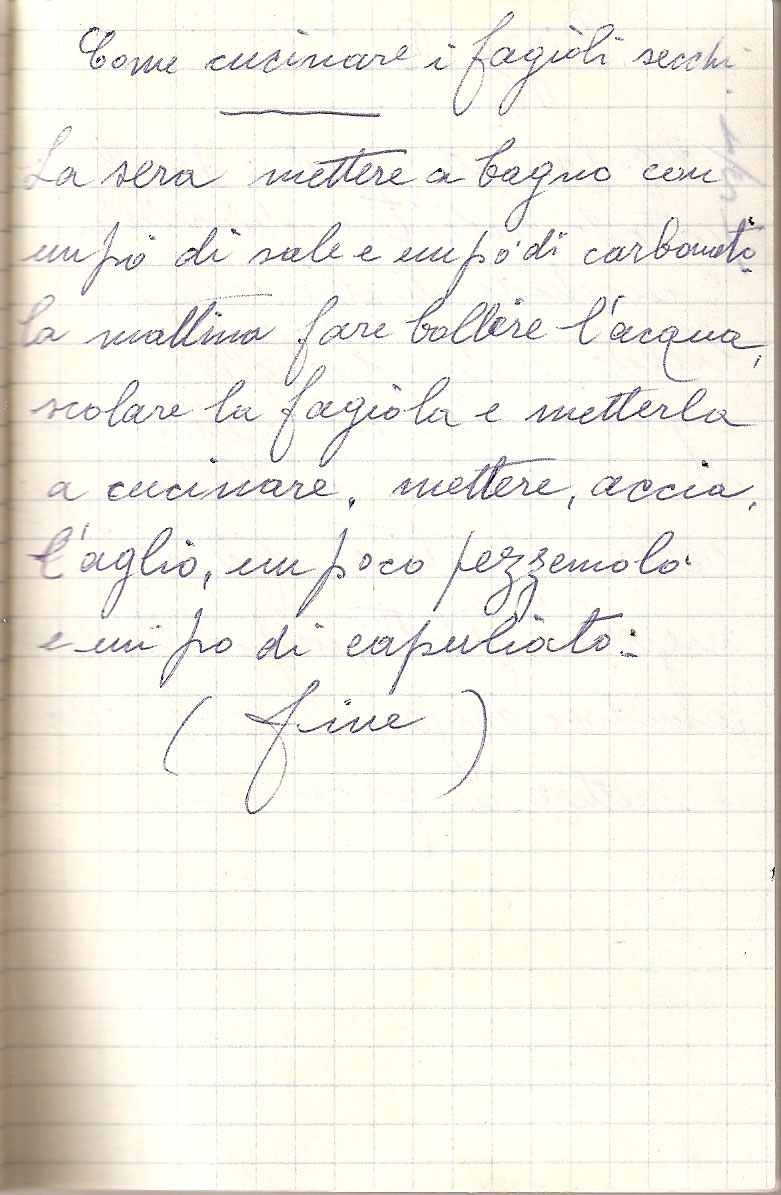 Come cucinare i fagioli secchi
La sera mettere a bagno con
un pò di sale e un pò di carbonato
la mattina fare bollire l'acqua,
scolare la fagiola e metterla
a cucinare, mettere, accia,
l'aglio, un poco pezzemolo
e un po di capuliato:
( fine )